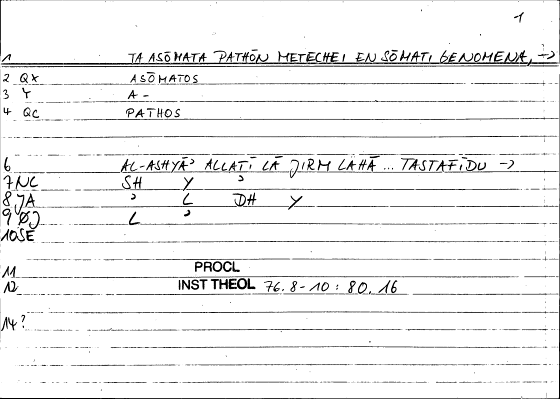 1
1 TA ASŌMATA PATHŌN METECHEI EN SŌMATI GENOMENA, →
2 QX ASŌMATOS
3 Y A -
4 QC PATHOS
6 AL-ASHYĀʾ ALLATĪ LĀ JIRM LAHĀ ... TASTAFĪDU →
7 NC SH Y ʾ
8 JA ʾ L DH Y
9 ØJ L ʾ
10 SE
11 PROCL
12 INST THEOL 76.8-10 : 80.16
14 ?